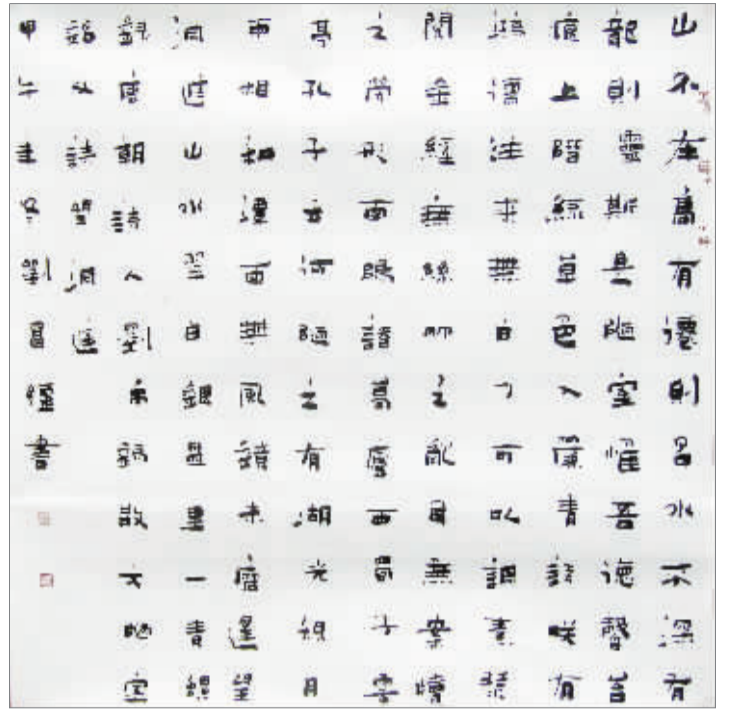 山不在高有僊則名水不深有
龍則靈斯是陋室惟吾德馨苔
痕上階綠草色入簾青談咲有
鴻儒往来無白丁可以調素琴
閱金經無絲竹之亂耳無案牘
之勞形南陽諸葛廬西蜀子雲
亭孔子云何陋之有湖光秋月
兩相和潭面無風鏡未磨遙望
洞庭山水翠白銀盤里一青螺
錄唐朝詩人劉禹錫散文陋室
銘及詩望洞庭
甲午冬劉昌經書